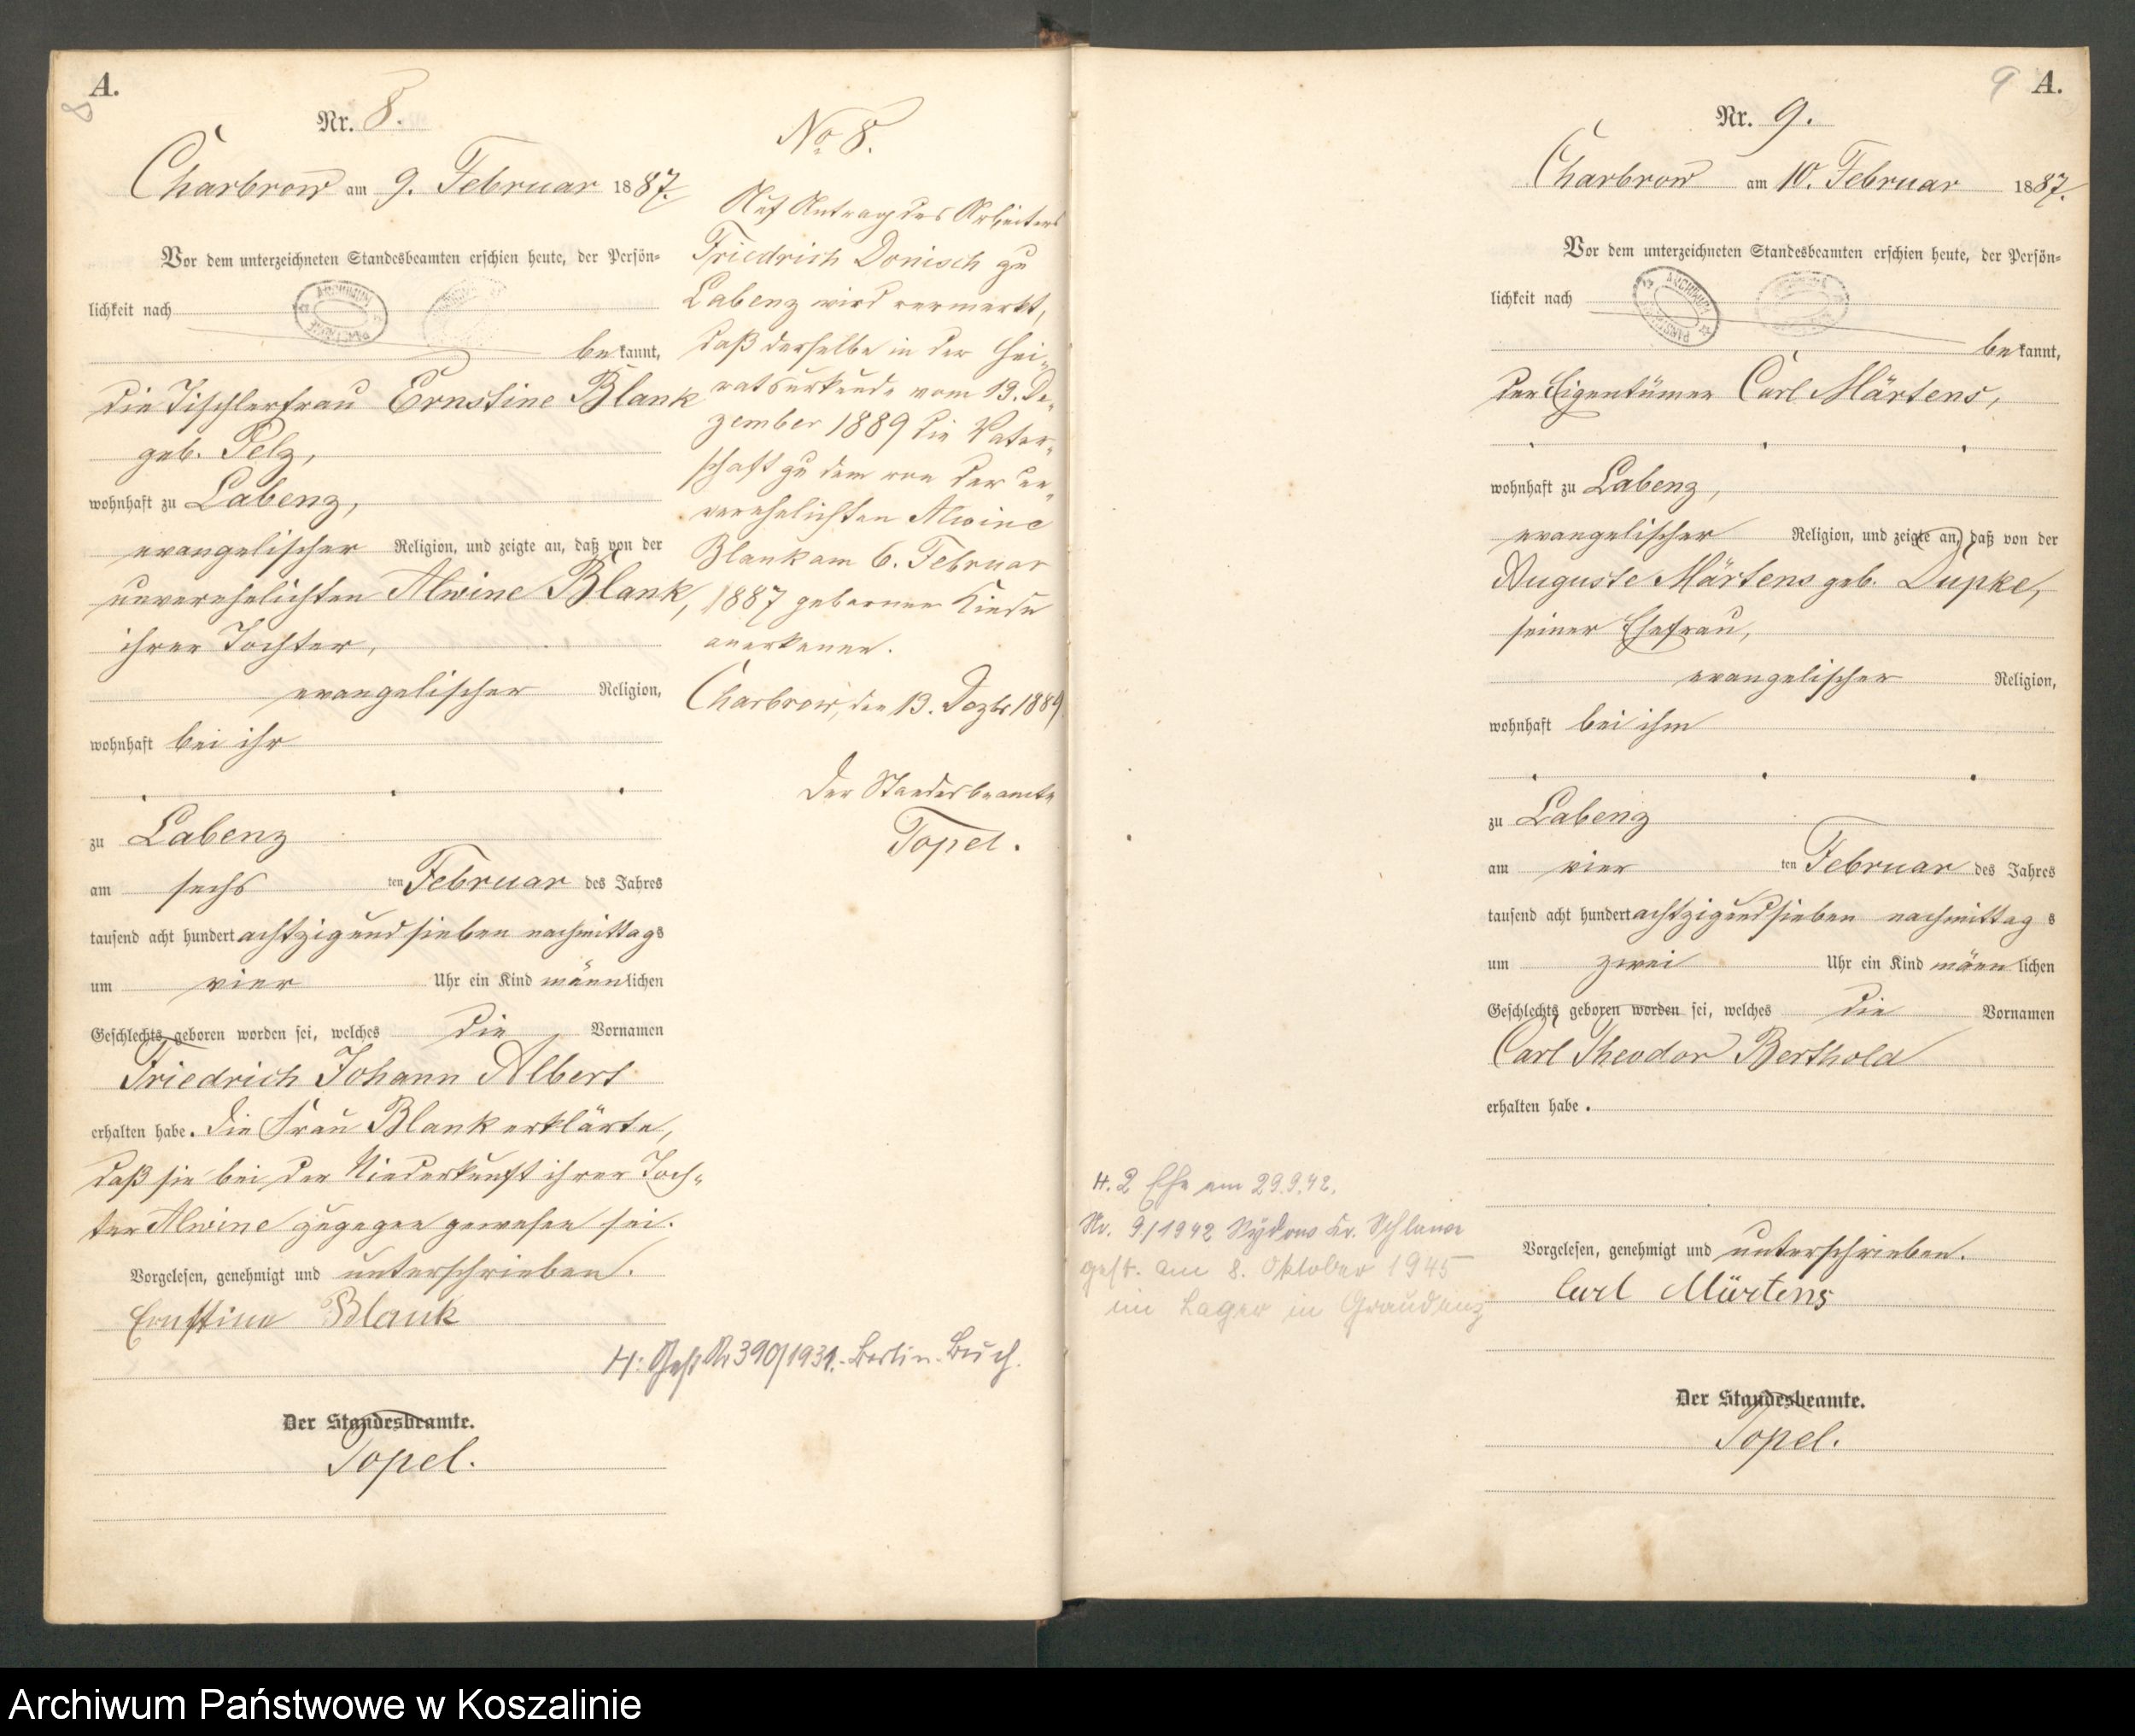 A.
8
Nr. 8.
Charbrow am 9. Februar 1887.
Vor dem unterzeichneten Standesbeamten erschien heute, der Persön-
lichkeit nach
bekannt,
die Tischlerfrau Ernstine Blank
geb. Pelz,
wohnhaft zu Labenz,
evangelischer Religion, und zeigte an, daß von der
unverehelichten Alwine Blank,
ihrer Tochter,
evangelischer Religion,
wohnhaft bei ihr
zu Labenz
am sechs ten Februar des Jahres
tausend acht hundert achtzig und sieben nachmittags
um vier Uhr ein Kind männlichen
Geschlechts geboren worden sei, welches die Vornamen
Friedrich Johann Albert
erhalten habe. Die Frau Blank erklärte,
daß sie bei der Niederkunft ihrer Toch-
ter Alwine zugegen gewesen sei.
Vorgelesen, genehmigt und unterschrieben.
Ernstine Blank
Der Standesbeamte.
Topel.
No 8.
Auf Antrag des Arbeiters
Friedrich Donisch zu
Labenz wird vermerkt,
daß derselbe in der Hei-
ratsurkunde vom 13. De-
zember 1889 die Vater-
schaft zu dem von der un-
verehelichten Alwine
Blank am 6. Februar
1887 geborenen Kinde
anerkannt.
Charbrow, den 13. Dezbr 1889
Der Standesbeamte
Topel.
H: Nr 390/1931. Berlin-Buch.
9 A.
Nr. 9.
Charbrow am 10. Februar 1887.
Vor dem unterzeichneten Standesbeamten erschien heute, der Persön-
lichkeit nach
bekannt,
der Eigentümer Carl Märtens,
wohnhaft zu Labenz,
evangelischer Religion, und zeigte an, daß von der
Auguste Märtens geb. Dupke,
seiner Ehefrau,
evangelischer Religion,
wohnhaft bei ihm
zu Labenz
am vier ten Februar des Jahres
tausend acht hundert achtzig und sieben nachmittags
um zwei Uhr ein Kind männlichen
Geschlechts geboren worden sei, welches die Vornamen
Carl Theodor Berthold
erhalten habe.
Vorgelesen, genehmigt und unterschrieben.
Carl Märtens
Der Standesbeamte.
Topel.
H. 2 Ehe am 29.9.42.
Nr. 9/1942 Kr. Schlawe
gest. am 8. Oktober 1945
im Lager in Graudenz
Archiwum Państwowe w Koszalinie